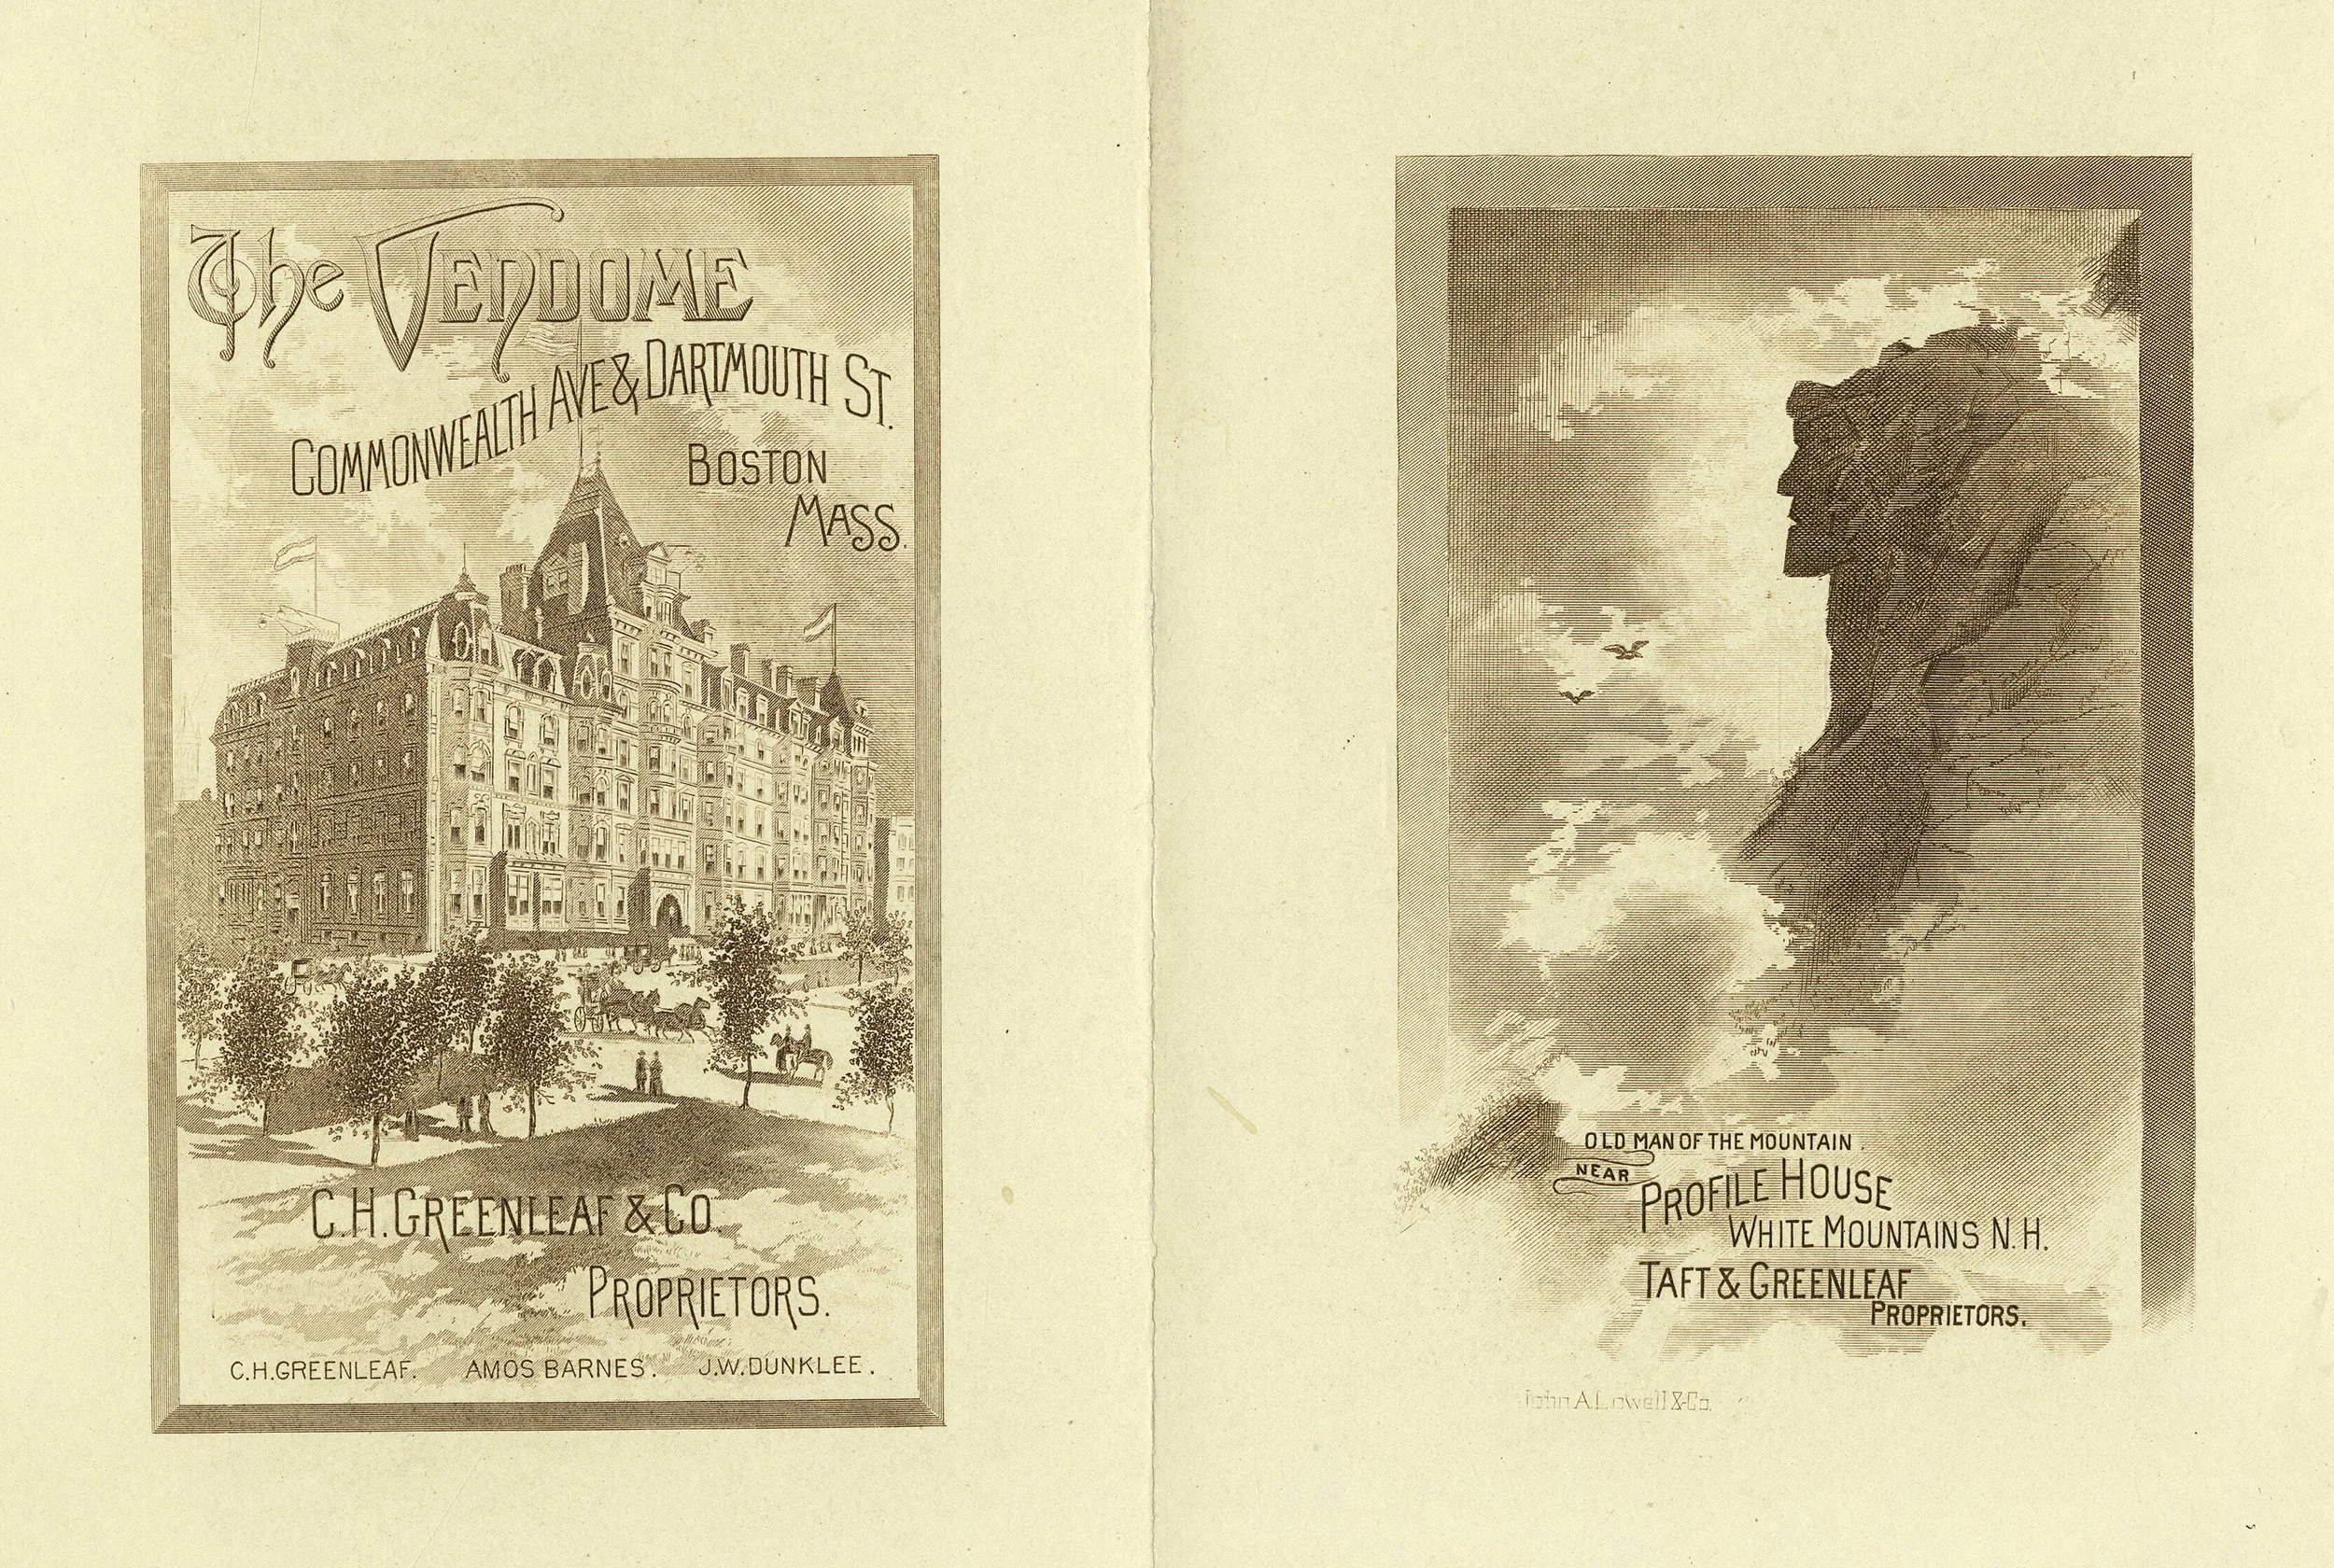 The Vendome
Commonwealth Ave & Dartmouth St.
Boston
Mass.
C.H. Greenleaf & Co
Proprietors.
C.H. GREENLEAF. AMOS BARNES. J.W. DUNKLEE.
OLD MAN OF THE MOUNTAIN
NEAR
Profile House
White Mountains N.H.
Taft & Greenleaf
Proprietors.
John A. Lowell & Co.